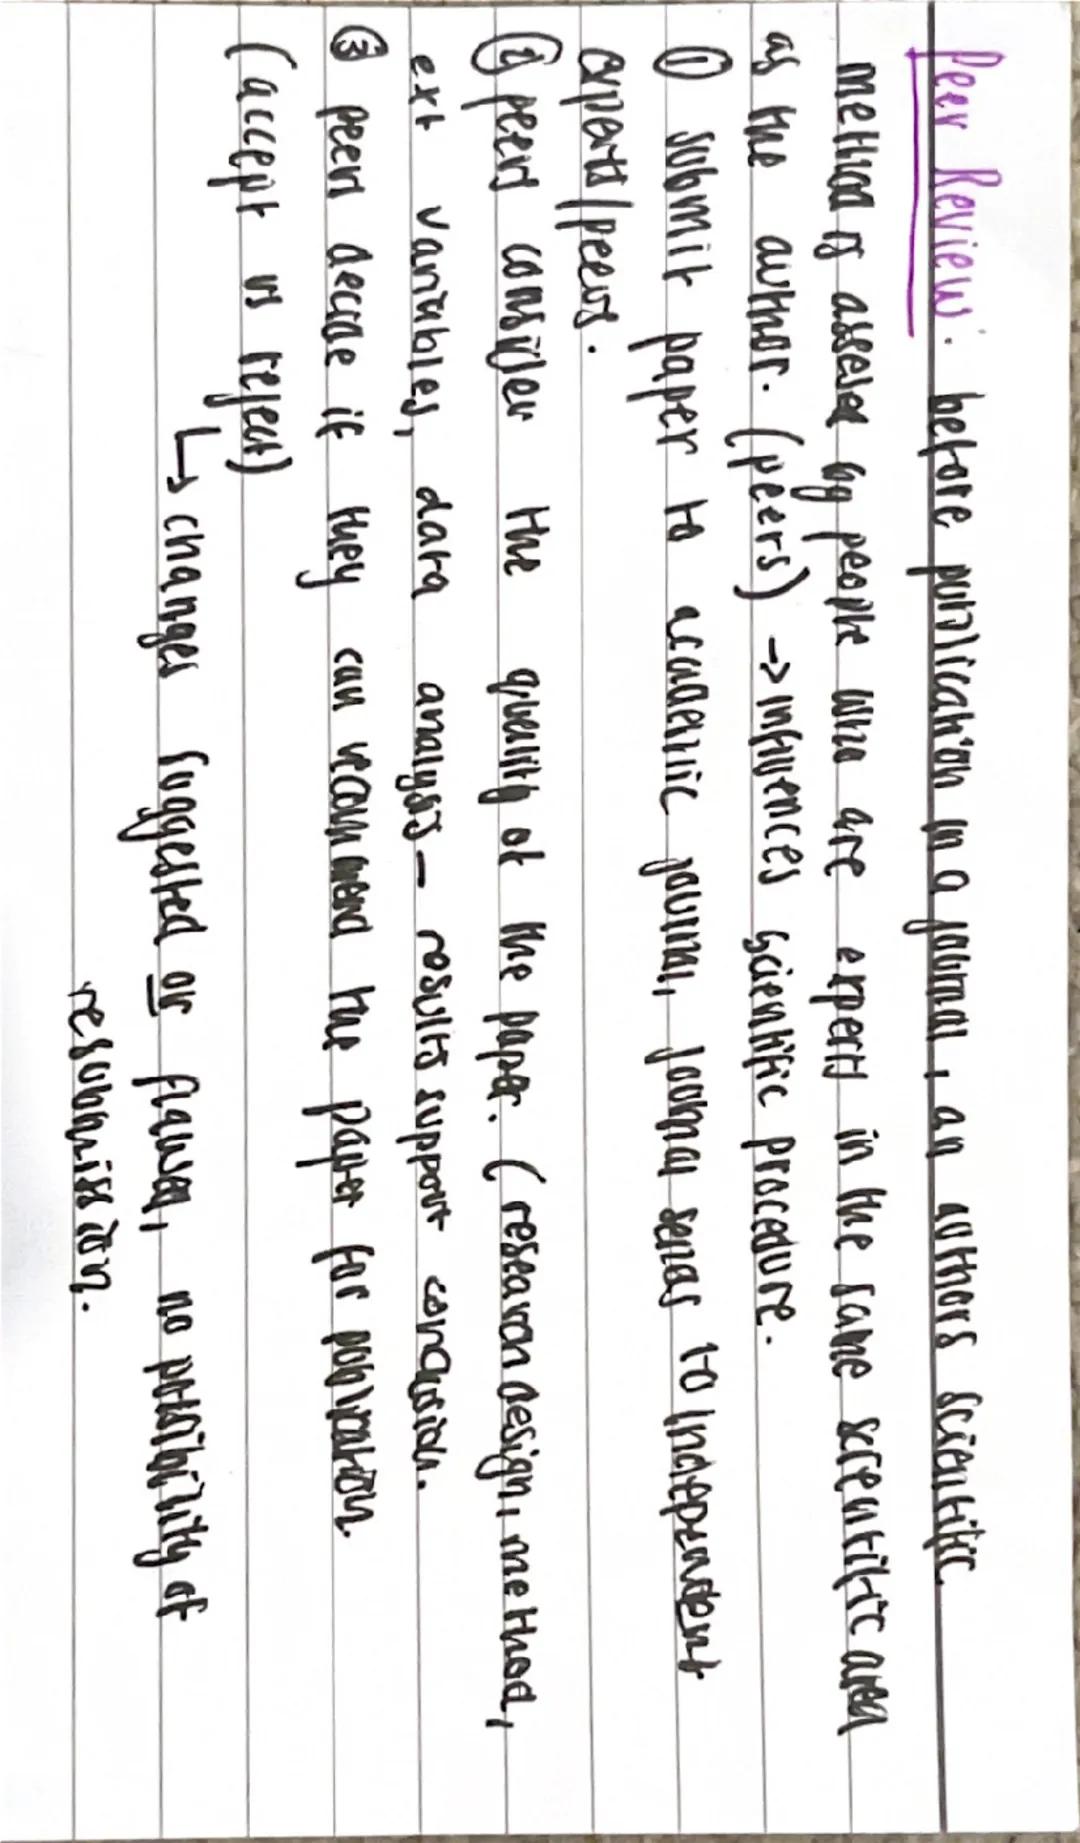 Peer Review: before publication in a journal, an authors scientific
method is assesed by people who are experts in the same scientific area
as the author. (peers) → influences scientific procedure.
① submit paper to academic journal, journal sends to independent
experts/peers.
② peers consider the quality of the paper. (research design, method,
ext variables, data analysis — results support conclusion.
③ peers decide if they can recommend the paper for publication
(accept vs reject)
↳ changes suggested or flawed, no possibility of
resubmission.